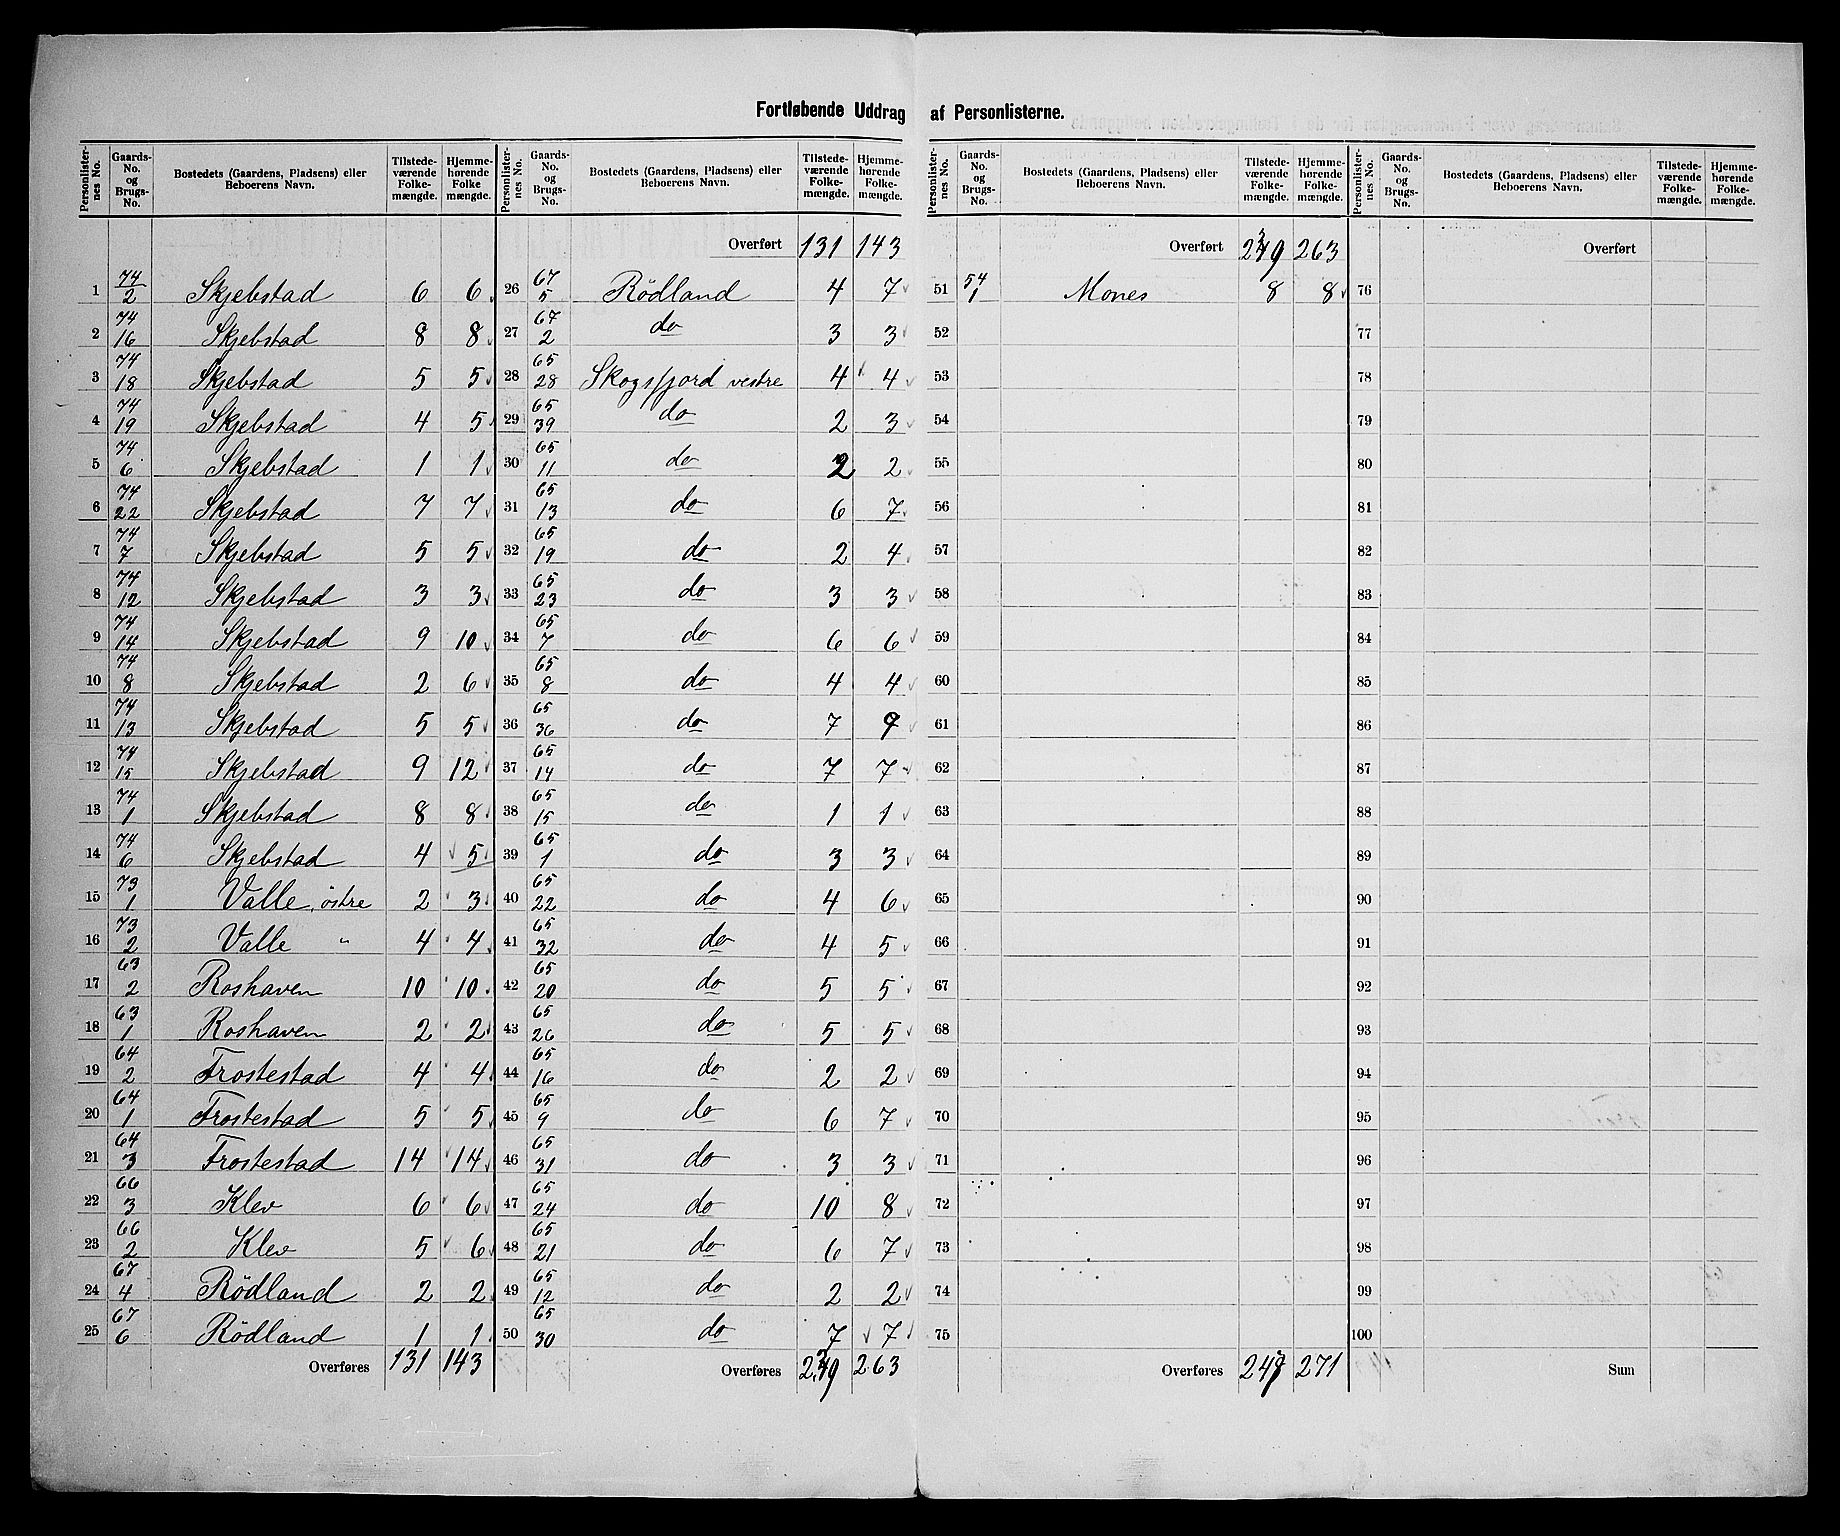 Fortløbende Uddrag af Personlisterne.
Personlisternes No. | Gaards-No. og Brugs-No. | Bostedets (Gaardens, Pladsens) eller Beboerens Navn. | Tilstedeværende Folkemængde. | Hjemmehørende Folkemængde.
1 74/2 Skjebstad 6 6
2 74/16 Skjebstad 8 8
3 74/18 Skjebstad 5 5
4 74/19 Skjebstad 4 5
5 74/6 Skjebstad 1 1
6 74/22 Skjebstad 7 7
7 74/7 Skjebstad 5 5
8 74/12 Skjebstad 3 3
9 74/14 Skjebstad 9 10
10 74/8 Skjebstad 2 6
11 74/13 Skjebstad 5 5
12 74/15 Skjebstad 9 12
13 74/1 Skjebstad 8 8
14 74/6 Skjebstad 4 5
15 73/1 Valle, östre 2 3
16 73/2 Valle " 4 4
17 63/2 Roshaven 10 10
18 63/1 Roshaven 2 2
19 64/2 Frostestad 4 4
20 64/1 Frostestad 5 5
21 64/3 Frostestad 14 14
22 66/3 Klev 6 6
23 66/2 Klev 5 6
24 67/4 Rödland 2 2
25 67/6 Rödland 1 1
Overføres 131 143
Personlisternes No. | Gaards-No. og Brugs-No. | Bostedets (Gaardens, Pladsens) eller Beboerens Navn. | Tilstedeværende Folkemængde. | Hjemmehørende Folkemængde.
Overført 131 143
26 67/5 Rödland 4 7
27 67/2 do 3 3
28 65/28 Skogsfjord vestre 4 4
29 65/39 do 2 3
30 65/11 do 2 2
31 65/13 do 6 7
32 65/19 do 2 4
33 65/23 do 3 3
34 65/7 do 6 6
35 65/8 do 4 4
36 65/36 do 7 9
37 65/14 do 7 7
38 65/15 do 1 1
39 65/1 do 3 3
40 65/22 do 4 6
41 65/32 do 4 5
42 65/20 do 5 5
43 65/26 do 5 5
44 65/16 do 2 2
45 65/9 do 6 7
46 65/31 do 3 3
47 65/24 do 10 8
48 65/21 do 6 7
49 65/12 do 2 2
50 65/30 do 7 7
Overføres 239 263
Personlisternes No. | Gaards-No. og Brugs-No. | Bostedets (Gaardens, Pladsens) eller Beboerens Navn. | Tilstedeværende Folkemængde. | Hjemmehørende Folkemængde.
Overført 239 263
51 54/1 Mones 8 8
52
53
54
55
56
57
58
59
60
61
62
63
64
65
66
67
68
69
70
71
72
73
74
75
Overføres 247 271
Personlisternes No. | Gaards-No. og Brugs-No. | Bostedets (Gaardens, Pladsens) eller Beboerens Navn. | Tilstedeværende Folkemængde. | Hjemmehørende Folkemængde.
Overført
76
77
78
79
80
81
82
83
84
85
86
87
88
89
90
91
92
93
94
95
96
97
98
99
100
Sum